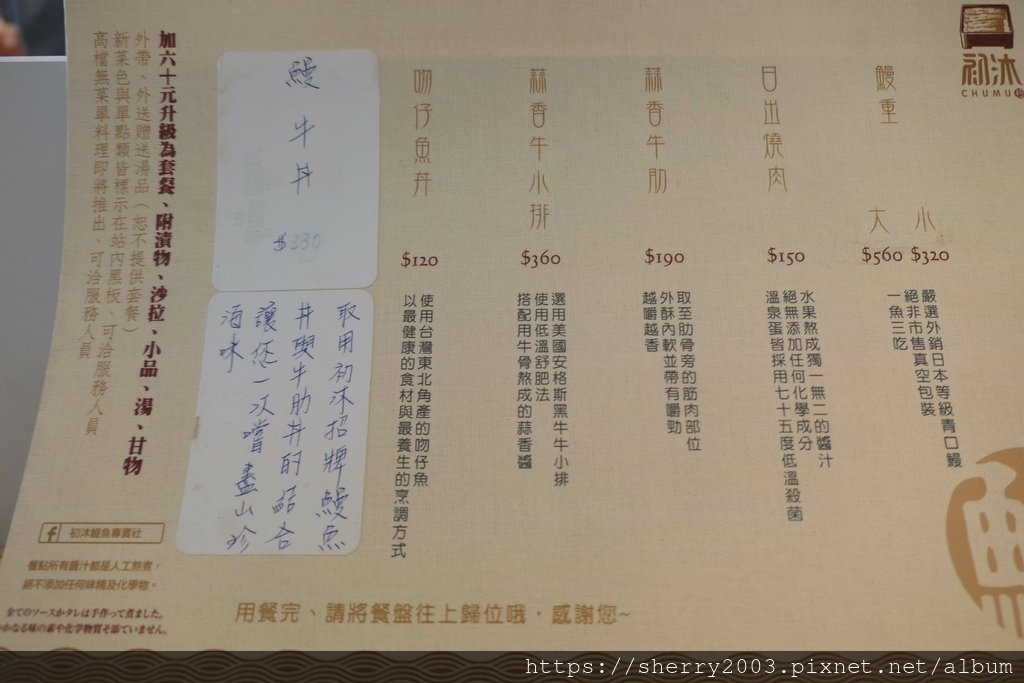 初沐
CHUMU
鰻重
大 小
$560 $320
嚴選外銷日本等級青口鰻
絕非市售真空包裝
一魚三吃
日出燒肉
$150
水果熬成獨一無二的醬汁
絕無添加任何化學成分
溫泉蛋皆採用七十五度低溫殺菌
蒜香牛肋
$190
取至肋骨旁的筋肉部位
外酥內軟並帶有嚼勁
越嚼越香
蒜香牛小排
$360
選用美國安格斯黑牛牛小排
使用低溫舒肥法
搭配用牛骨熬成的蒜香醬
吻仔魚丼
$120
使用台灣東北角產的吻仔魚
以最健康的食材與最養生的烹調方式
鰻牛丼
$330
取用初沐招牌鰻魚
丼與牛肋丼的結合
讓您一次嚐盡山珍
海味
加六十元升級為套餐、附漬物、沙拉、小品、湯、甘物
外帶、外送贈送湯品（恕不提供套餐）
新菜色與單點類皆標示在站內黑板、可洽服務人員
高檔無菜單料理即將推出、可洽服務人員
f 初沐鰻魚專賣社
餐點所有醬汁都是人工熬煮，
絕不添加任何味精及化學物。
全てのソースかタレは手作って煮ました。
かなる味の素や化学物質そ添ていません。
用餐完、請將餐盤往上歸位哦，感謝您~
https://sherry2003.pixnet.net/album